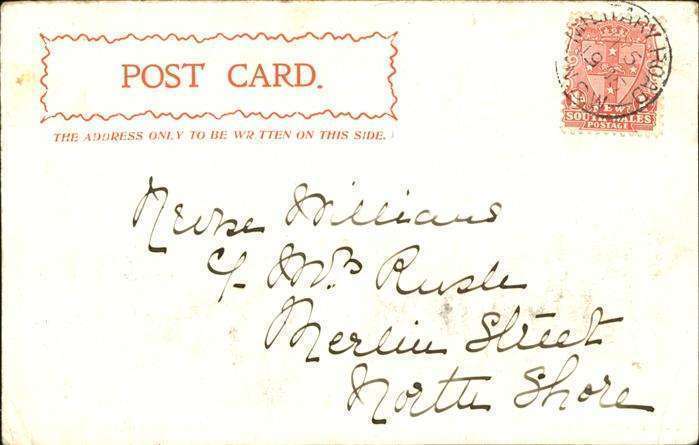 POST CARD.
THE ADDRESS ONLY TO BE WR TTEN ON THIS SIDE.
MILITARY ROAD
N.S.W
NEW
SOUTH WALES
POSTAGE
Nurse Williams
c/- Mrs Rusle
Merlin Street
North Shore